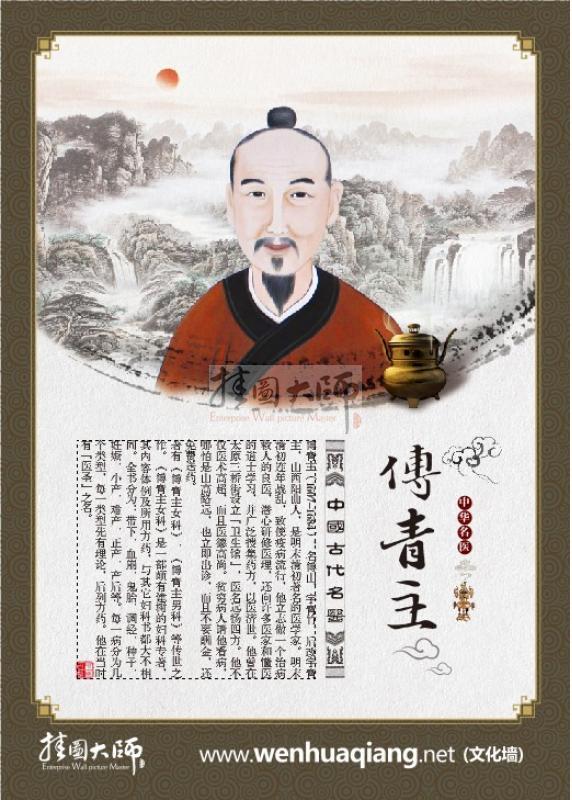 傅青主
中华名医
中國古代名醫
傅青主(1607-1684),名傅山,字青竹,后改字青
主,山西阳曲人,是明末清初著名的医学家。明末
清初连年战乱,致使疫病流行,他立志做一个治病
救人的良医,潜心研修医理,还向许多医家和懂医
的道士学习,并广泛搜集药方,以医济世。他曾在
太原三桥街设立「卫生馆」,医名远扬四方。他不
仅医术高超,而且医德高尚。贫穷病人请他看病,
哪怕是山高路远,也立即出诊,而且不要酬金,还
免费送药。
著有《傅青主女科》、《傅青主男科》等传世之
作。《傅青主女科》是一部颇有建树的妇科专著,
其内容体例及所用方药,与其它妇科书都大不相
同。全书分为:带下、血崩、鬼胎、调经、种子、
妊娠、小产、难产、正产、产后等。每一病分为几
个类型,每一类型先有理论,后列方药。他在当时
有「医圣」之名。
挂圖大师
Enterprise Wall picture Master
挂圖大师
Enterprise Wall picture Master
www.wenhuaqiang.net (文化墙)